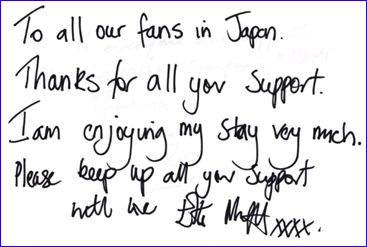 To all our fans in Japan.
Thanks for all you support.
I am enjoying my stay very much.
Please keep up all your support
xxxx.